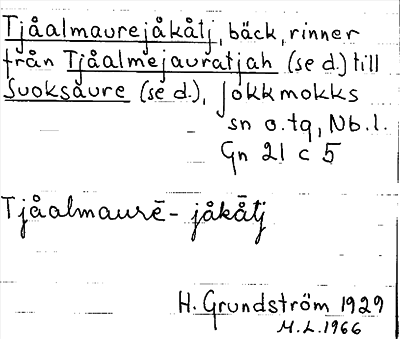 Tjåalmaurejåkåtj, bäck, rinner
från Tjåalmejauratjah (se d.) till
Suoksaure (se d.), Jokkmokks
sn o. tg, Nb. l.
Gn 21 c 5
Tjåalmaurē- jåkåtj
H. Grundström 1929
M.L. 1966